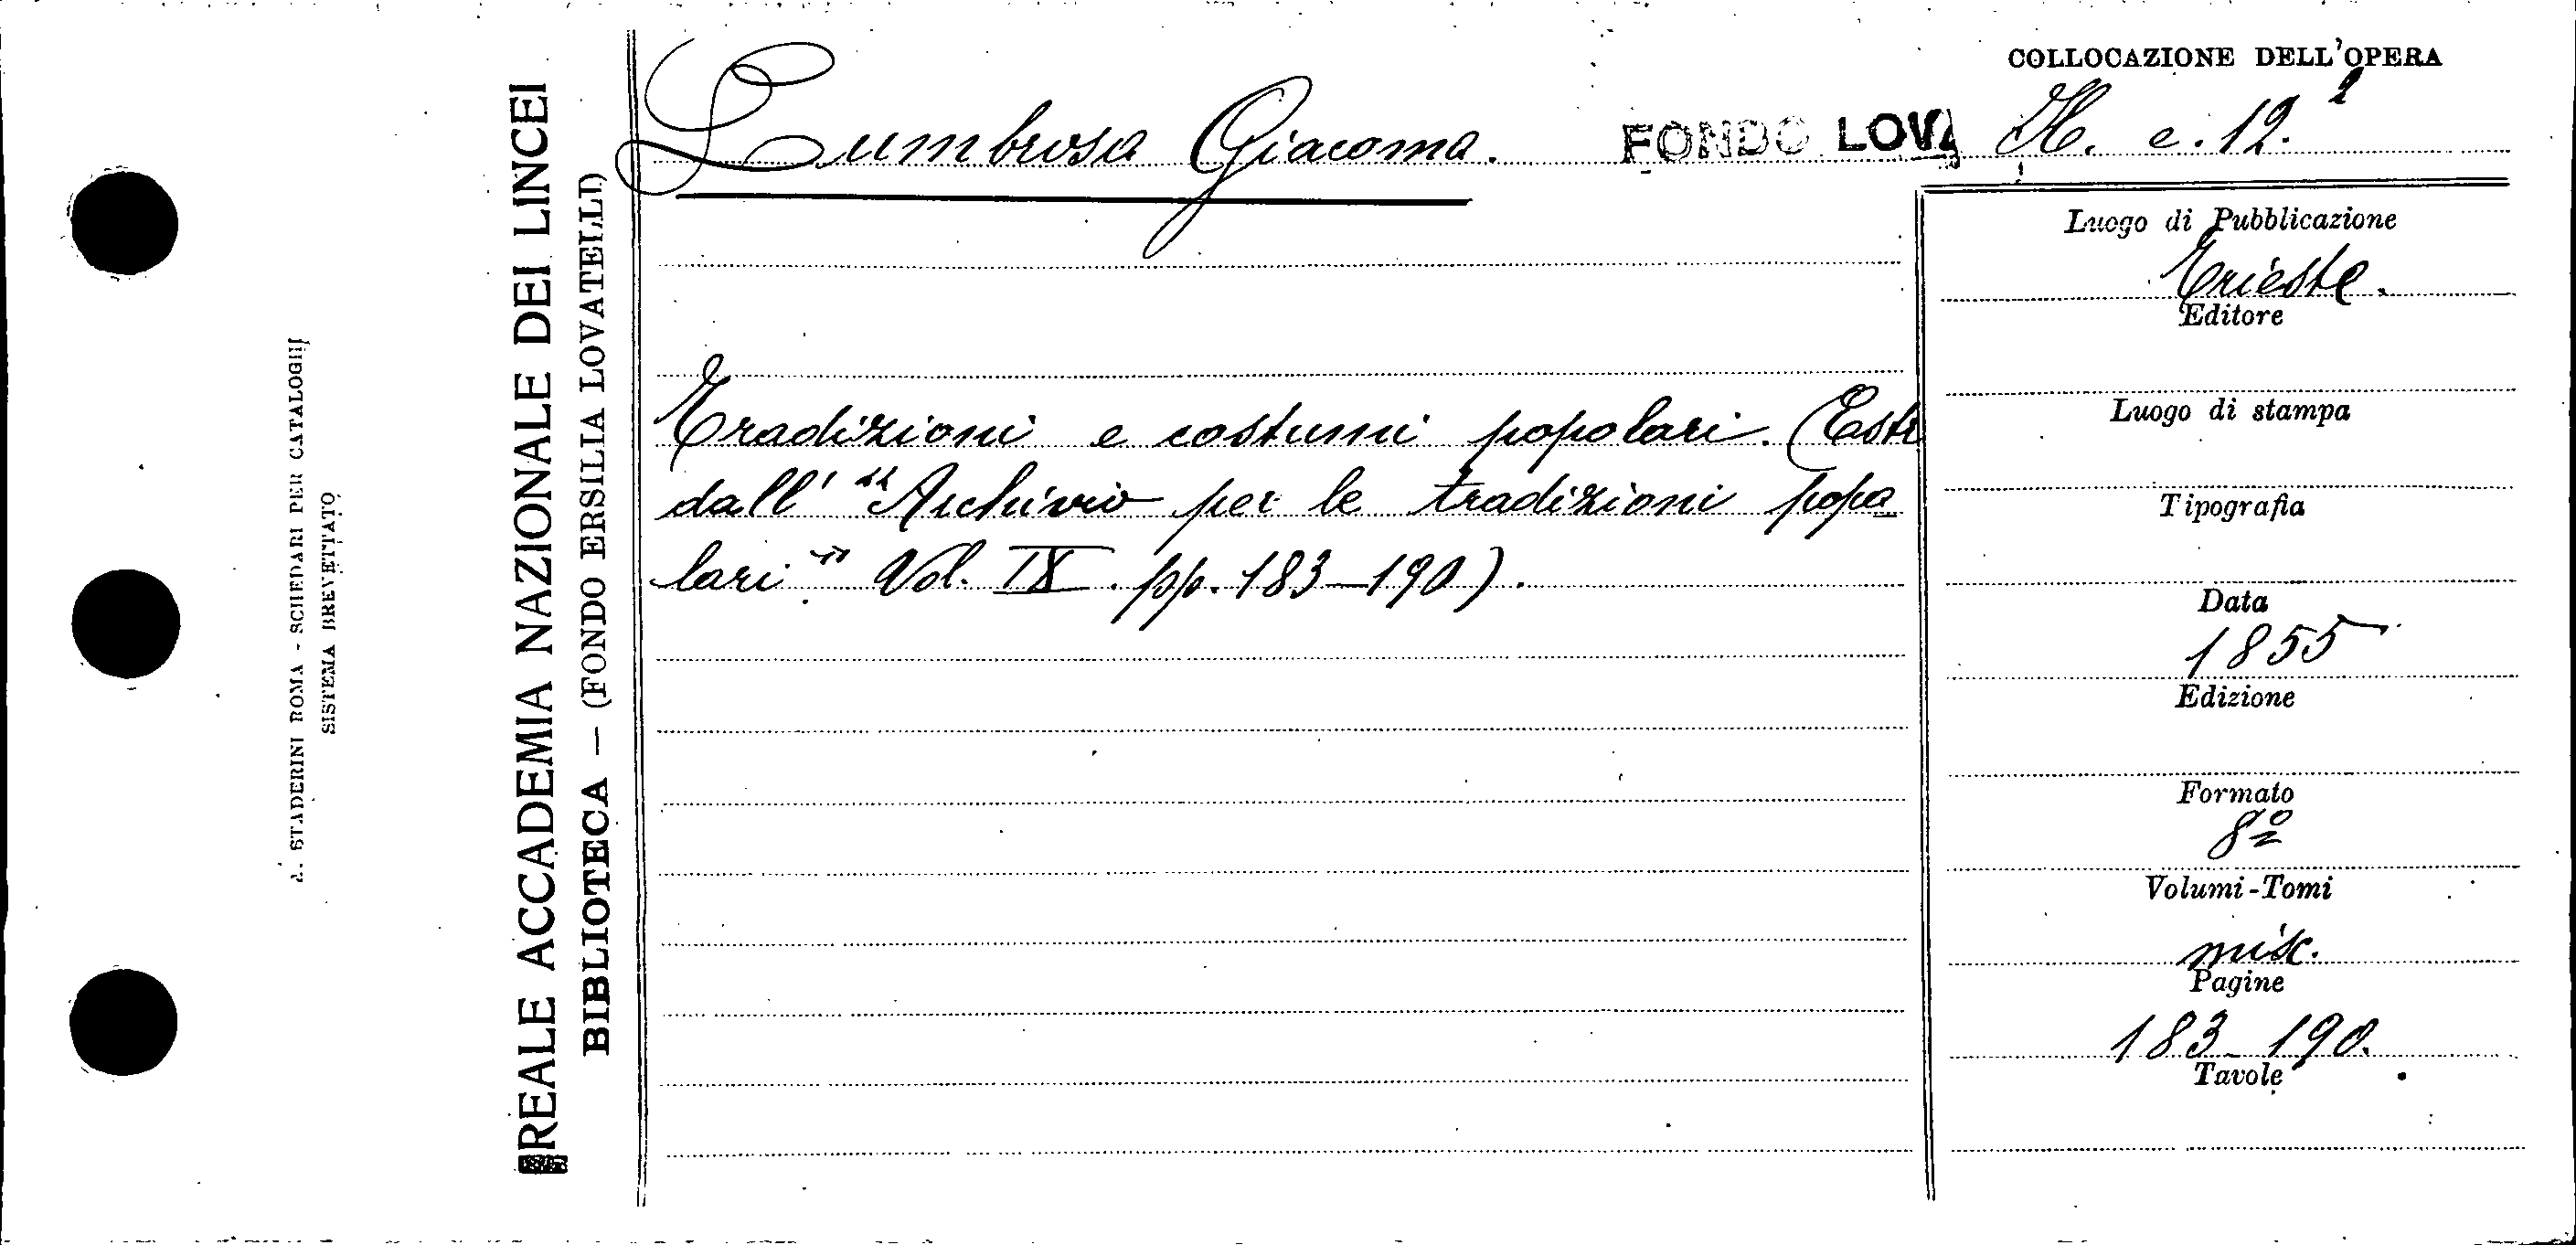 COLLOCAZIONE DELL'OPERA
Lumbroso Giacomo. FONDO LOVA H. e. 12.²
Tradizioni e costumi popolari. (Estr
dall' "Archivio per le tradizioni popo
lari" Vol. IX. pp. 183-190).
Luogo di Pubblicazione
Trieste.
Editore
Luogo di stampa
Tipografia
Data
1855
Edizione
Formato
8º
Volumi-Tomi
misc.
Pagine
183-190.
Tavole
REALE ACCADEMIA NAZIONALE DEI LINCEI
BIBLIOTECA — (FONDO ERSILIA LOVATELLI)
STADERINI ROMA - SCHEDARI PER CATALOGHI
SISTEMA BREVETTATO